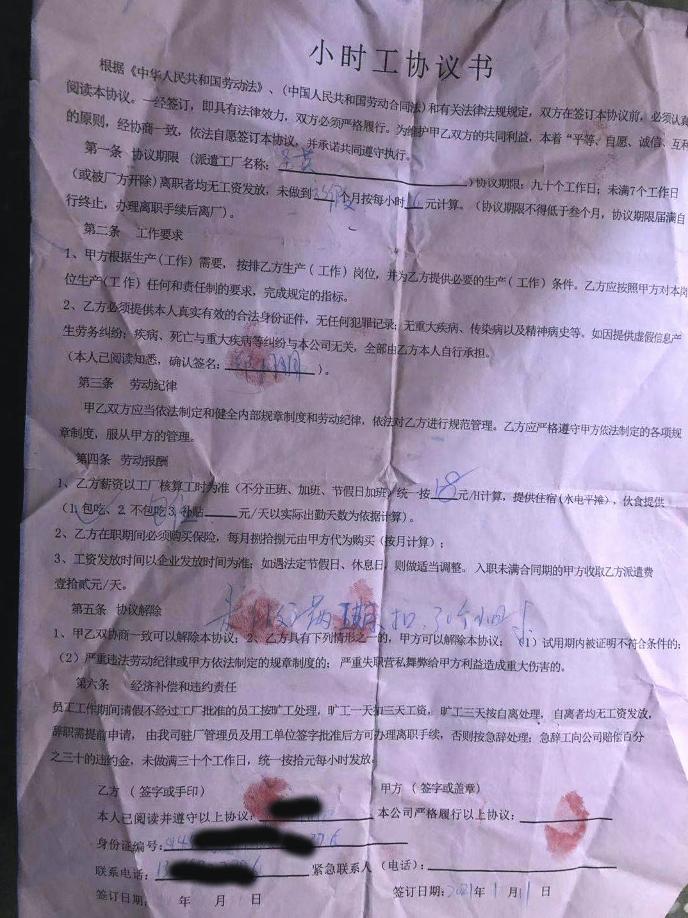 小时工协议书
根据《中华人民共和国劳动法》、(中国人民共和国劳动合同法)和有关法律法规规定，双方在签订本协议前，必须认真
阅读本协议。一经签订，即具有法律效力，双方必须严格履行。为维护甲乙双方的共同利益，本着“平等、自愿、诚信、互利
的原则，经协商一致，依法自愿签订本协议，并承诺共同遵守执行。
第一条 协议期限（派遣工厂名称：）协议期限：九十个工作日；未满7个工作日
（或被厂方开除）离职者均无工资发放，未做到个月按每小时16元计算。（协议期限不得低于叁个月，协议期限届满自
行终止，办理离职手续后离厂）。
第二条 工作要求
1、甲方根据生产(工作)需要，按排乙方生产（工作）岗位，并为乙方提供必要的生产（工作）条件。乙方应按照甲方对本岗
位生产(工作）任何和责任制的要求，完成规定的指标。
2、乙方必须提供本人真实有效的合法身份证件，无任何犯罪记录；无重大疾病、传染病以及精神病史等。如因提供虚假信息产
生劳务纠纷；疾病、死亡与重大疾病等纠纷与本公司无关，全部由乙方本人自行承担。
（本人已阅读知悉，确认签名：）。
第三条 劳动纪律
甲乙双方应当依法制定和健全内部规章制度和劳动纪律，依法对乙方进行规范管理。乙方应严格遵守甲方依法制定的各项规
章制度，服从甲方的管理。
第四条 劳动报酬
1、乙方薪资以工厂核算工时为准（不分正班、加班、节假日加班）统一按18元/H计算，提供住宿(水电平摊)，伙食提供
（1. 包吃、2. 不包吃3. 补贴元/天以实际出勤天数为依据计算）。
2、乙方在职期间必须购买保险，每月捌拾捌元由甲方代为购买（按月计算）；
3、工资发放时间以企业发放时间为准；如遇法定节假日、休息日，则做适当调整。 入职未满合同期的甲方收取乙方派遣费
壹拾贰元/天。
第五条 协议解除
1、甲乙双协商一致可以解除本协议；2、乙方具有下列情形之一的，甲方可以解除本协议；（1）试用期内被证明不符合条件的；
（2）严重违法劳动纪律或甲方依法制定的规章制度的； 严重失职营私舞弊给甲方利益造成重大伤害的。
第六条 经济补偿和违约责任
员工工作期间请假不经过工厂批准的员工按旷工处理，旷工一天扣三天工资，旷工三天按自离处理，自离者均无工资发放，
辞职需提前申请，由我司驻厂管理员及用工单位签字批准后方可办理离职手续，否则按急辞处理；急辞工向公司赔偿百分
之三十的违约金，未做满三十个工作日，统一按拾元每小时发放。
乙方（签字或手印） 甲方（签字或盖章）
本人已阅读并遵守以上协议： 本公司严格履行以上协议：
身份证编号：
联系电话： 紧急联系人（电话）：
签订日期： 年 月 日 签订日期：2021年1月11日